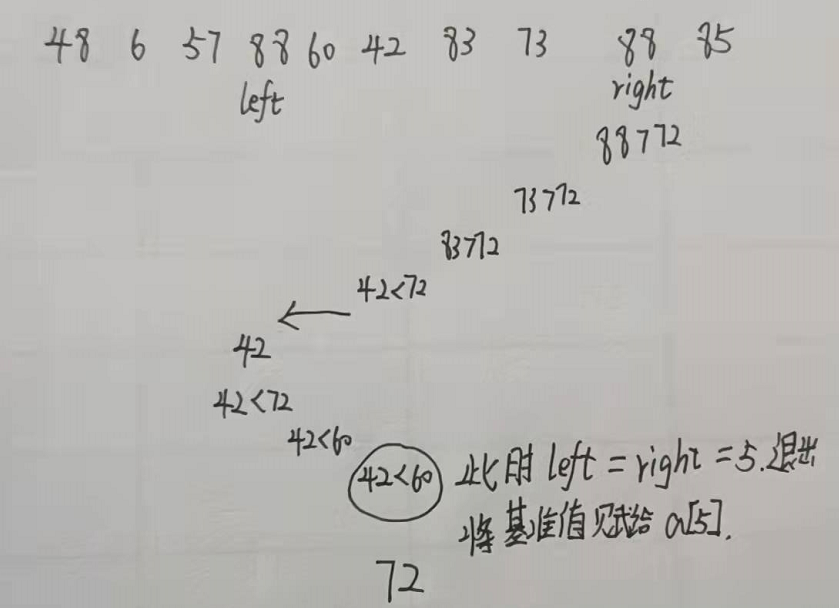 48 6 57 88 60 42 83 73 88 85
left right
88>72
73>72
83>72
42<72
←
42
42<72
42<60
42<60 此时 left = right = 5.退出
将基准值赋给 a[5].
72